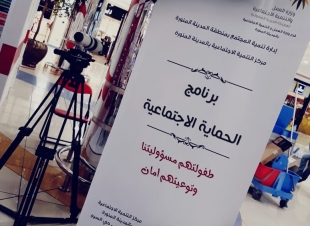 وزارة العمل
والتنمية الاجتماعية
إدارة تنمية المجتمع بمنطقة المدينة المنورة
مركز التنمية الاجتماعية بالمدينة المنورة
برنامج
الحماية الاجتماعية
طفولتهم مسؤوليتنا
وتوعيتهم أمان
مركز التنمية الاجتماعية
بالمدينة المنورة